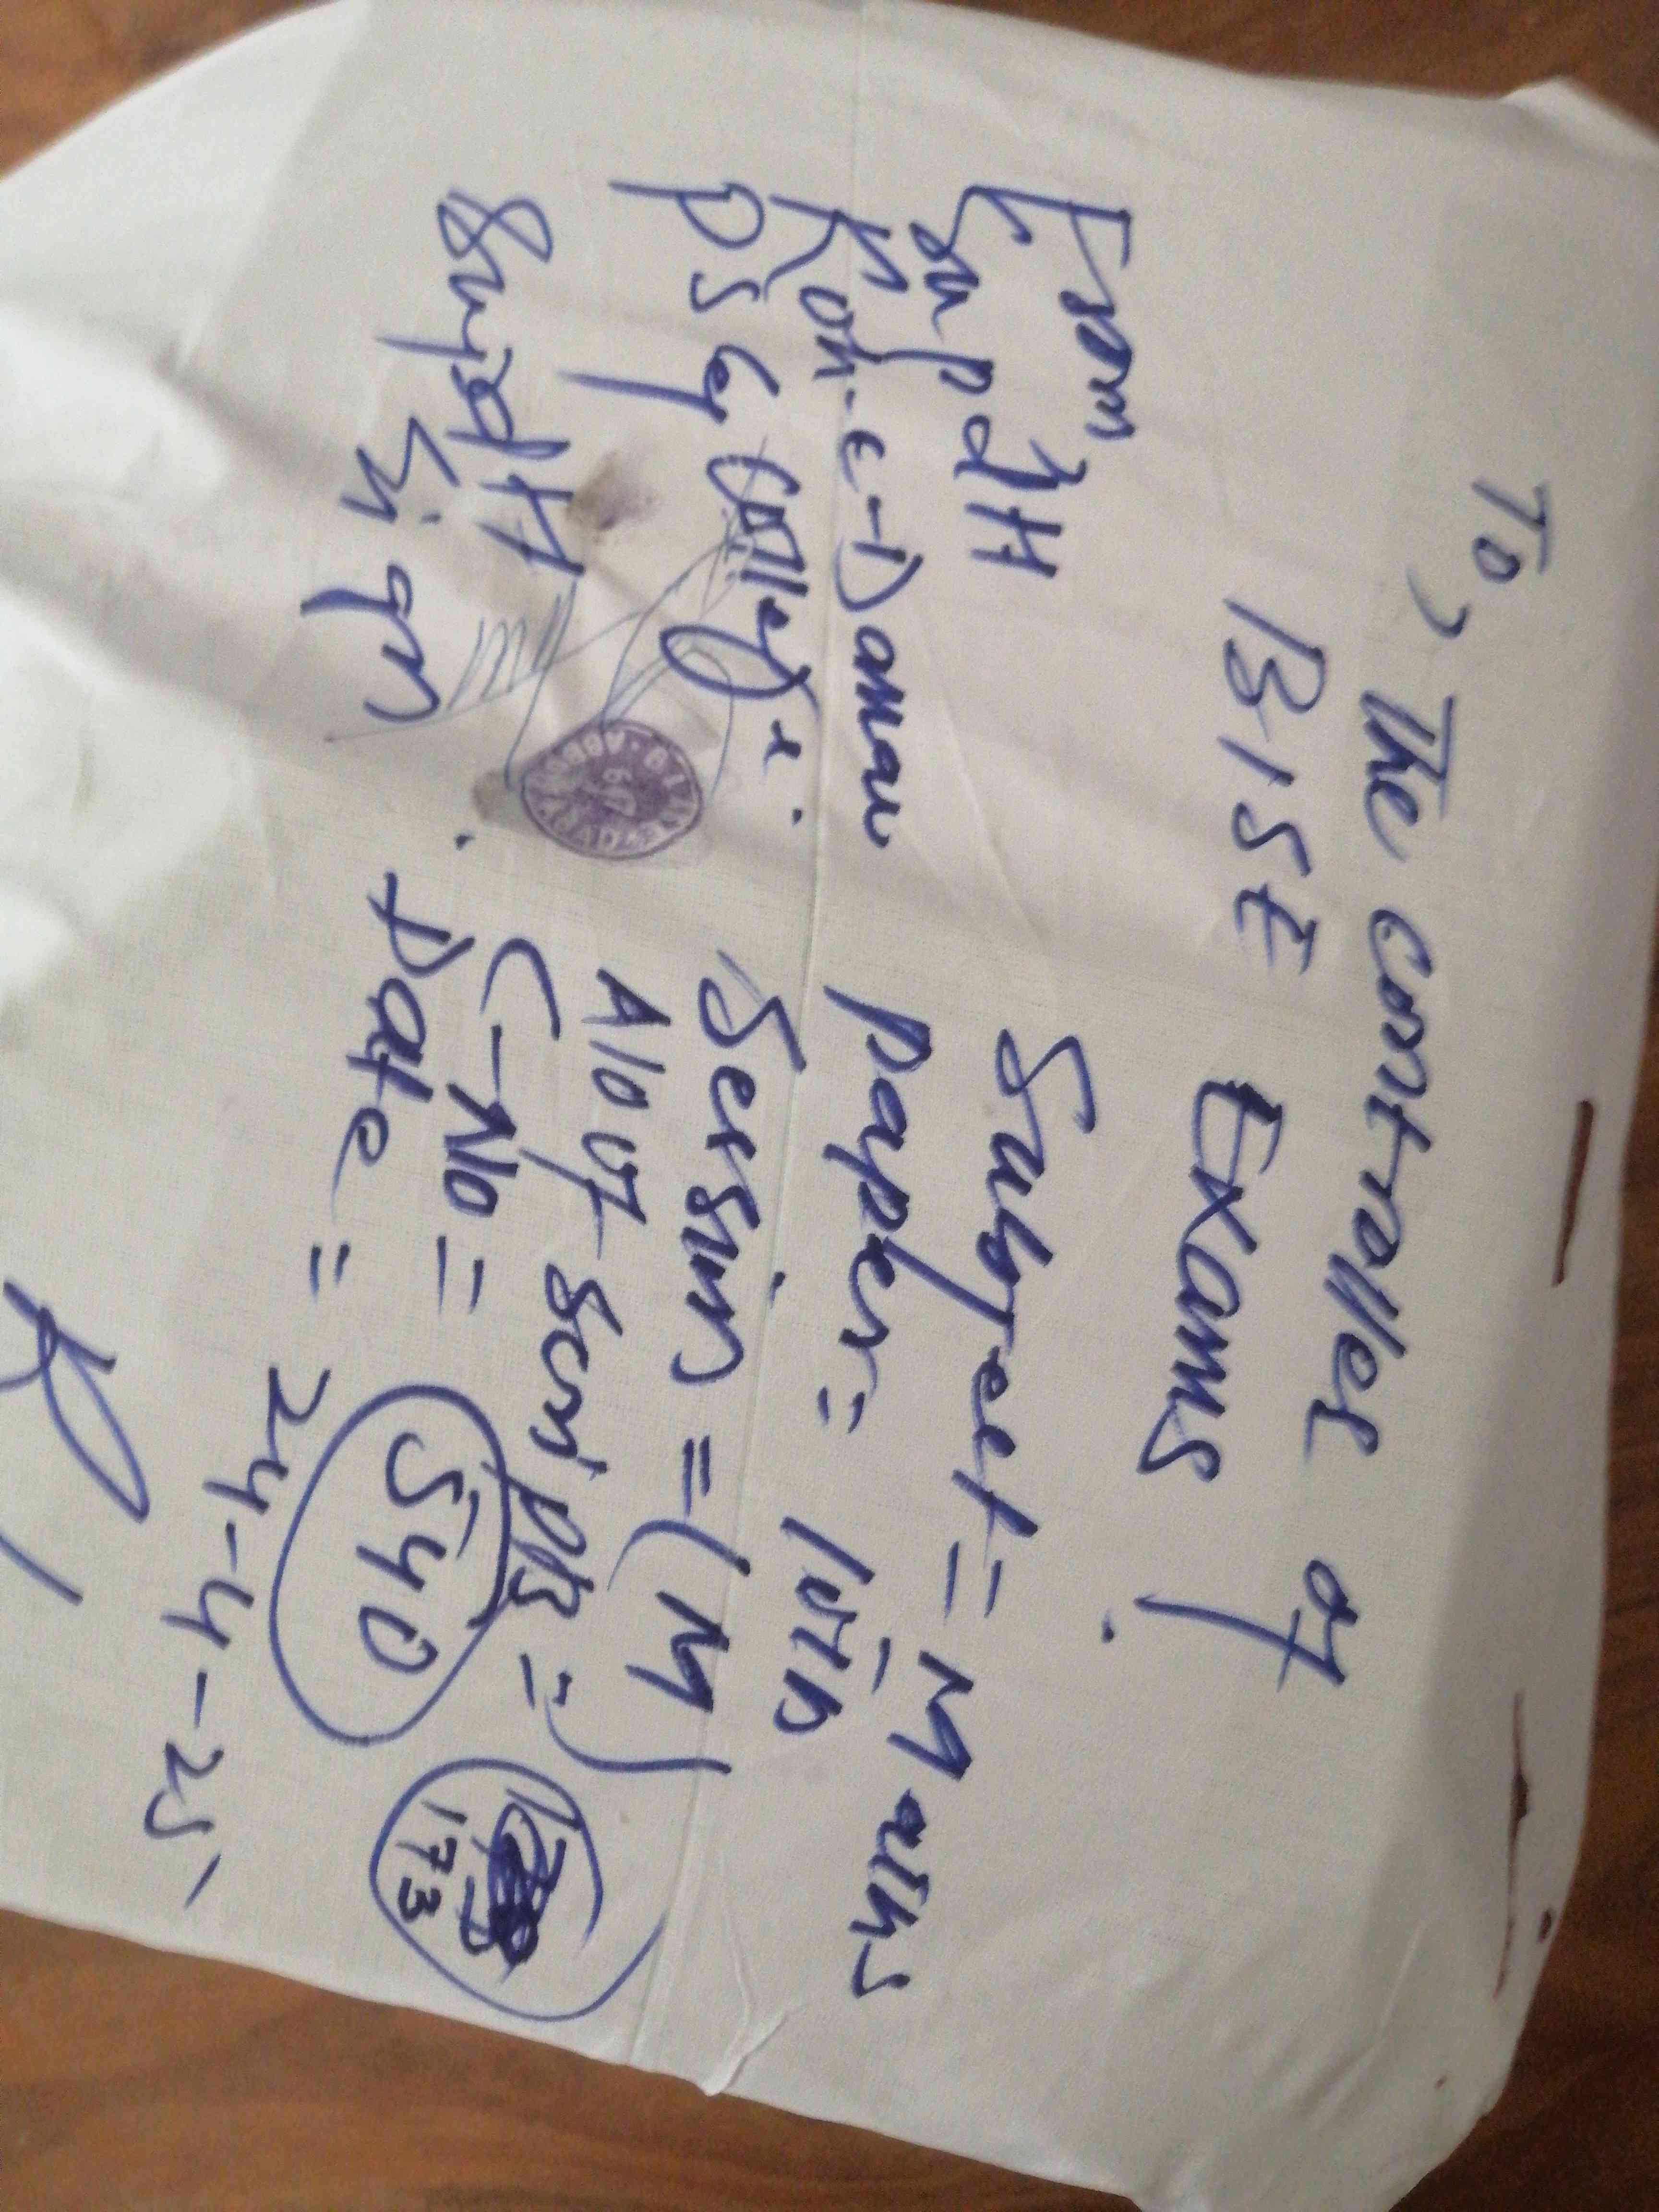 To, The controller of
BISE Exams.
From
Supdtt
Koh-e-Daman
PS & College.
Supdtt
Sign
Subject = Maths
Paper = 10th
Session = (M)
Al of Scripts =
173
C-No = 540
Date = 24-4-25